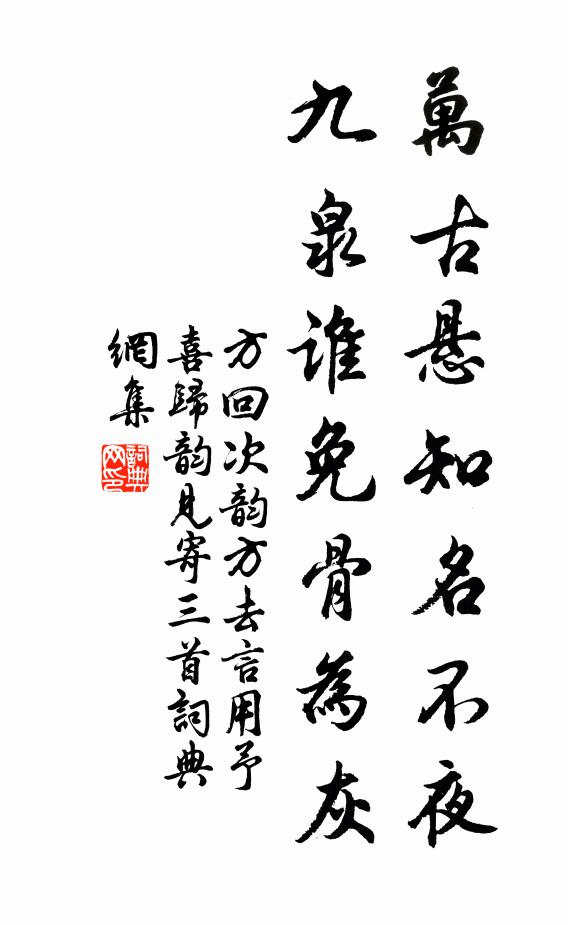 萬古悬知名不夜
九泉谁免骨為灰
方回次韵方去言用予
喜歸韵見寄三首詞典
網集
詞典
网印